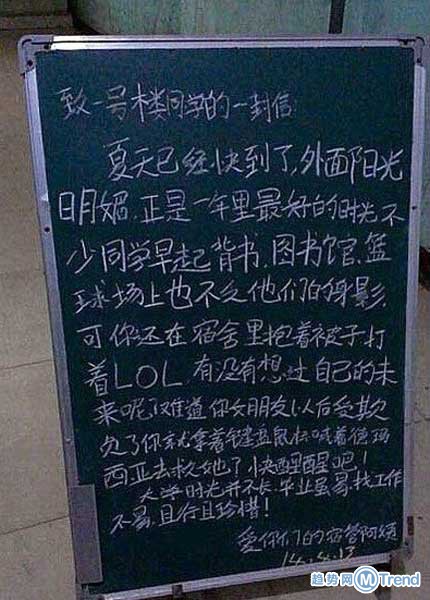 致一号楼同学的一封信:
夏天已经快到了,外面阳光
明媚.正是一年里最好的时光.不
少同学早起背书.图书馆.篮
球场上也不乏他们的身影.
可你还在宿舍里抱着被子打
着LOL.有没有想过自己的未
来呢?难道你女朋友以后受欺
负了你就拿着键盘鼠标喊着德玛
西亚去救她?快醒醒吧!
大学时光并不长.毕业虽易.找工作
不易.且行且珍惜!
爱你们的宿管阿姨
14.4.13
趋势网 M Trend